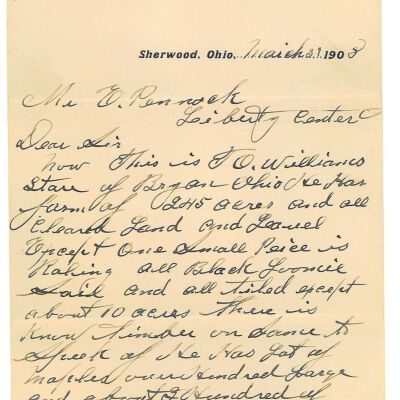 Sherwood, Ohio, March 31, 1903
Mr E. Pennock
Liberty Center
Dear Sir
Now This is T O. Williams
Starr of Bryan Ohio He Has
farm of 245 acres and all
Cleard Land and Leavel
Except One Small Peice is
Roking all Black Loomie
Soil and all tiled except
about 10 acres There is
Know timber on same to
Speek of He Has Lot of
Maples over Hundred Large
and about 2 Hundred of